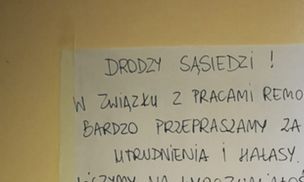 DRODZY SĄSIEDZI !
W ZWIĄZKU Z PRACAMI REMO
BARDZO PRZEPRASZAMY ZA
UTRUDNIENIA I HAŁASY.
LICZYMY NA